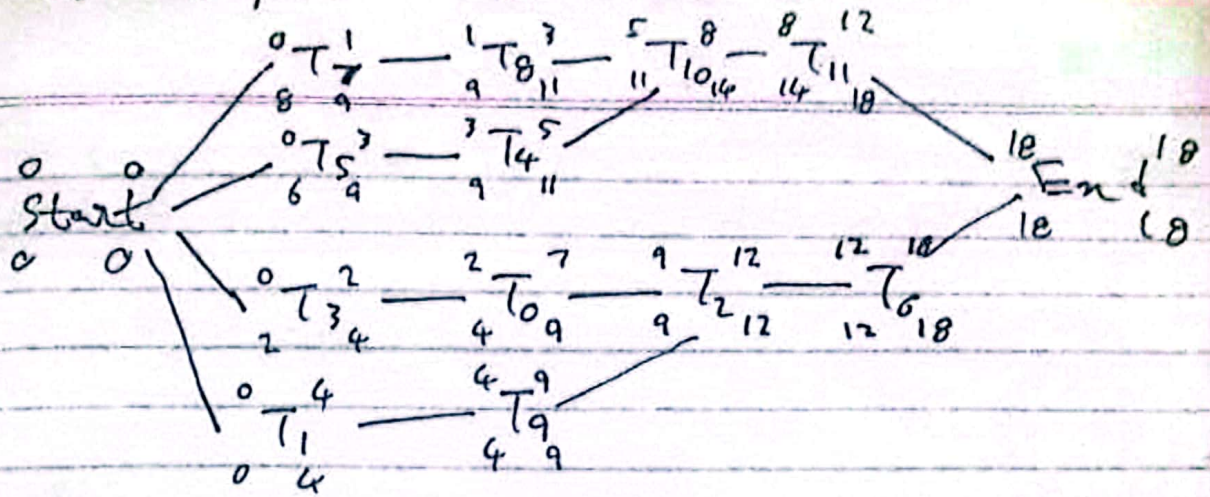 0 T7 1 — 1 T8 3 — 5 T10 8 — 8 T11 12
8 9 9 11 11 14 14 18
0 T5 3 — 3 T4 5
6 9 9 11
0 0 18 18
Start End
0 0 18 18
0 T3 2 — 2 T0 7 — 9 T2 12 — 12 T6 18
2 4 4 9 9 12 12 18
0 T1 4 — 4 T9 9
0 4 4 9